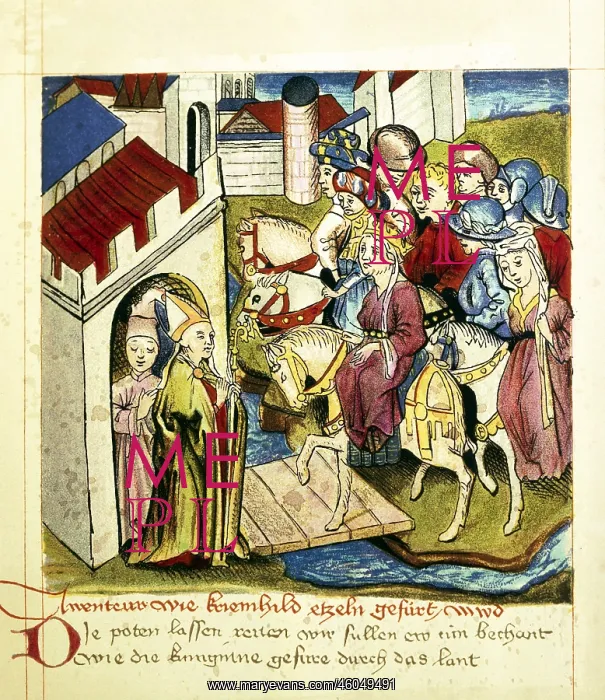 ME
PL
ME
PL
Awenteur wie kremhild etzeln gefürt ward
Die poten lassen reiten wir sullen ew tun bechant
wie die kuniginne gefure durch das lant
www.maryevans.com/46049491